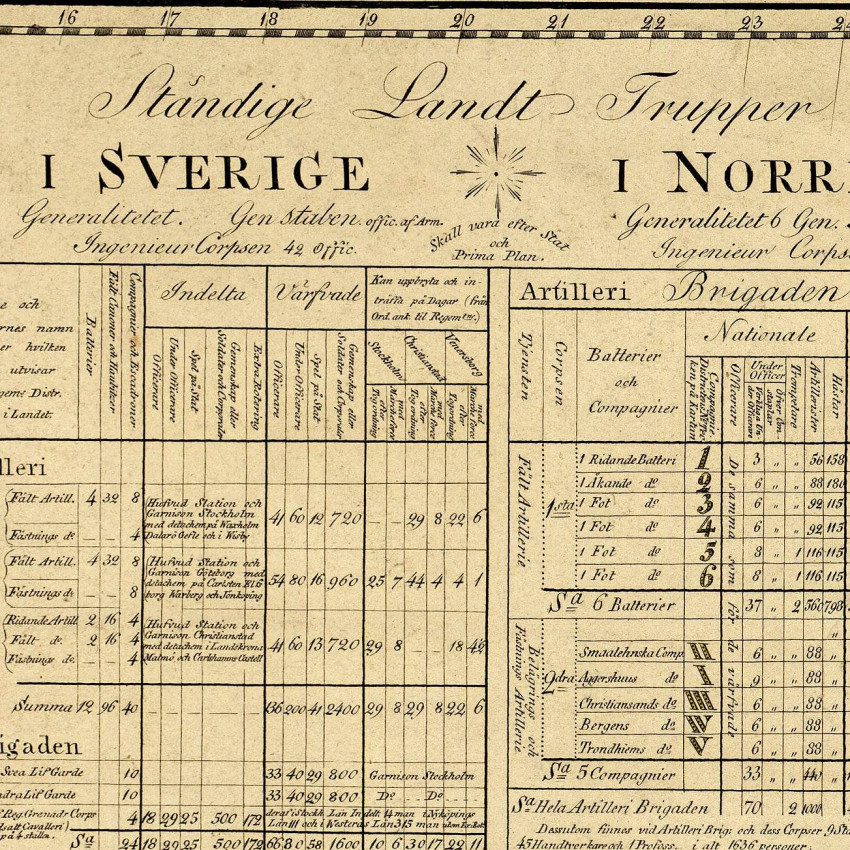 16 17 18 19 20 21 22 23
Ständige Landt Trupper
I SVERIGE
Generalitetet. Gen staben. offic. af Arm.
Ingenieur Corpsen 42 Offic.
Skall vara efter Stat
och
Prima Plan.
I NORR
Generalitetet 6 Gen.
Ingenieur Corps
e och
rnes namn
er hvilken
utvisar
gems Distr.
i Landet.
Batterier
Fält Canoner och Haubitser
Compagnier och Escadroner
Indelta
Officerare
Under Officerare
Spel på Stat
Gemenskap eller
Soldater och Corporaler
Extra Rotering
Värfvade
Officrare
Under Officerare
Spel på Stat
Gemenskap eller
Soldater och Corporaler
Kan uppbryta och in-
träffa på Dagar (från
Ord. ank. til Regemtne.)
Stockholm
Christianstad
Venersborg
efter
Tågordning
med
Marche force
efter
Tågordning
med
Marche force
efter
Tågordning
med
Marche force
lleri
Fält Artill. 4 32 8
Fästnings do _ _ 4
Hufvud Station och
Garnison Stockholm
med detachem på Waxholm
Dalarö Gefle och i Wisby
41 60 12 720 _ _ 29 8 22 6
Fält Artill. 4 32 8
Fästnings do _ _ 8
Hufvud Station och
Garnison Göteborg med
detachem på Carlsten Elfs
borg Warberg och Jönköping
54 80 16 960 25 7 44 4 4 1
Ridande Artill 2 16 4
Fält do. 2 16 4
Fästnings do. _ _ 4
Hufvud Station och
Garnison Christianstad
med detachem i Landskrona
Malmö och Carlshamns Castell
41 60 13 720 29 8 _ _ 18 4½
Summa 12 96 40 _ _ _ _ _ 136 200 41 2400 29 8 29 8 22 6
igaden
Svea Lif Garde 10 33 40 29 800 Garnison Stockholm
ndra Lif Garde 10 33 40 29 800 Do _ Do _
f Reg. Granadr Corps 4 18 29 25 500 172
Sa 24 18 29 25 500 172 66 80 58 1600 10 6 30 17 22 11
Artilleri Brigaden
Tjensten
Corpsen
Batterier
och
Compagnier
Nationale
Compagnie
Officerare
Under
Officer
Trompetare
Artillerister
Hästar
Fält Artillerie
1sta
1 Ridande Batteri 1 3 „ „ 56 158
1 Åkande do 2 6 „ „ 88 180
1 Fot do 3 6 „ „ 92 115
1 Fot do 4 6 „ „ 92 115
1 Fot do 5 8 „ 1 116 115
1 Fot do 6 8 „ 1 116 115
De samma som för de värfvade
Sa 6 Batterier 37 „ 2 560 798
Belägrings och
Fästnings Artillerie
2dra
Smaalehnska Comp. 6 „ „ 88
Aggershuus do 9 „ „ 88
Christiansands do 6 „ „ 88
Bergens do 6 „ „ 88
Trondhiems do V 6 „ „ 88
Sa 5 Compagnier 33 „ „ 440 „
Sa Hela Artilleri Brigaden 70 2 1000
Dessutom finnes vid Artilleri Brig: och dess Corpser 9
45 Handtverkare och 1 Profoss. i alt 1636 personer.